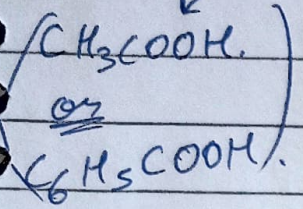 (CH₃COOH.
or
C₆H₅COOH).